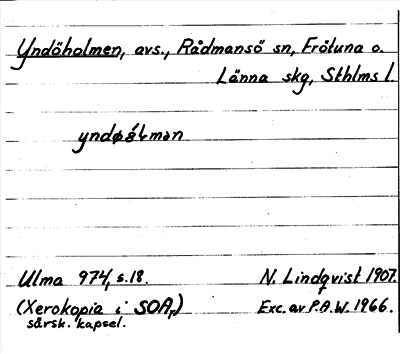 Yndöholmen, avs., Rådmansö sn, Frötuna o.
Länna skg, Sthlms l.
Ulma 974, s.18.
N. Lindqvist 1907.
(Xerokopia i SOA,)
särsk. kapsel.
Exc. av P.A.W. 1966.